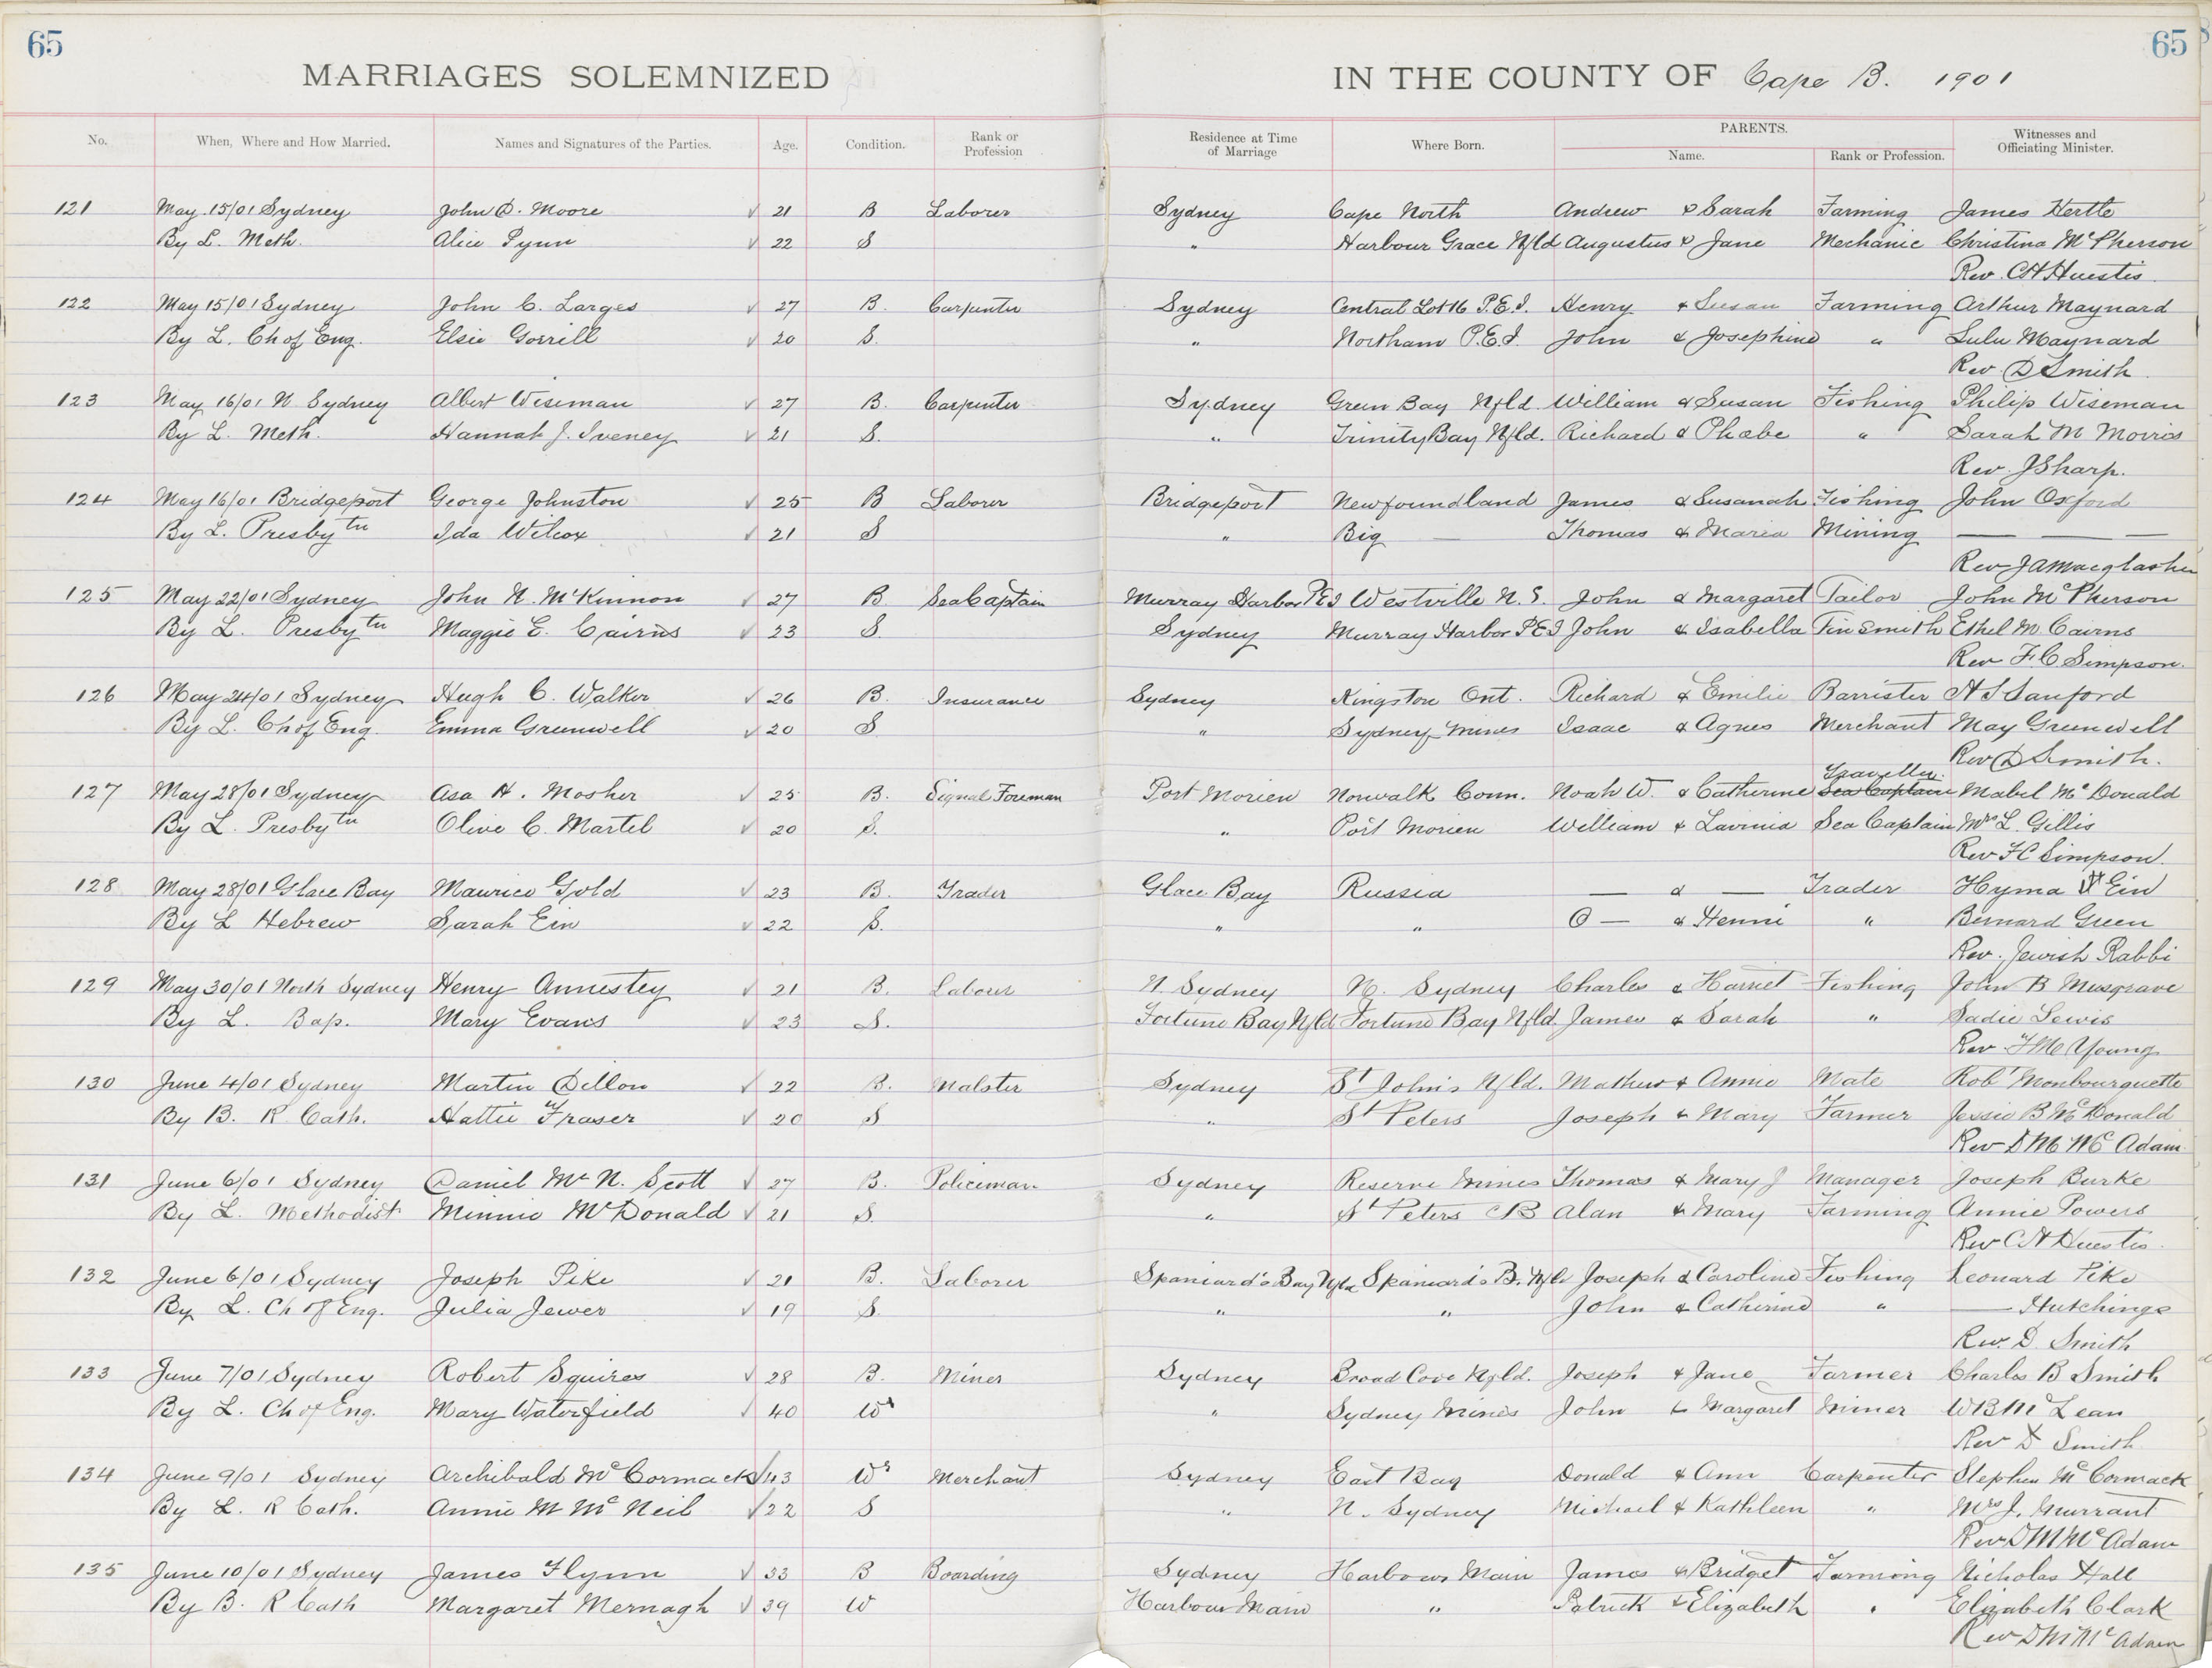 65 65
MARRIAGES SOLEMNIZED IN THE COUNTY OF Cape B. 1901
No. When, Where and How Married. Names and Signatures of the Parties. Age. Condition. Rank or Profession Residence at Time of Marriage Where Born. PARENTS. Name. Rank or Profession. Witnesses and Officiating Minister.
121 May 15/01 Sydney John D. Moore √ 21 B Laborer Sydney Cape North Andrew & Sarah Farming James Hertle
By L. Meth. Alice Pynn √ 22 S " Harbour Grace Nfld Augustus & Jane Mechanic Christina McPherson
Rev. CH Huestis
122 May 15/01 Sydney John C. Larges √ 27 B. Carpenter Sydney Central Lot 16 P.E.I. Henry & Susan Farming Arthur Maynard
By L. Ch of Eng. Elsie Gorrill √ 20 S. " Northam P.E.I. John & Josephine " Lulu Maynard
Rev D Smith.
123 May 16/01 N Sydney Albert Wiseman √ 27 B. Carpenter Sydney Green Bay Nfld. William & Susan Fishing Philip Wiseman
By L. Meth. Hannah J. Iveney √ 21 S. " Trinity Bay Nfld. Richard & Phœbe " Sarah M Morris
Rev. J Sharp.
124 May 16/01 Bridgeport George Johnston √ 25 B Laborer Bridgeport Newfoundland James & Susanah Fishing John Oxford
By L. Presbytn Ida Wilcox √ 21 S " Big — Thomas & Maria Mining — — —
Rev JA Macglashen
125 May 22/01 Sydney John N. McKinnon √ 27 B. Sea Captain Murray Harbor PEI Westville N.S. John & Margaret Tailor John McPherson
By L. Presbytn Maggie E. Cairns √ 23 S. Sydney Murray Harbor PEI John & Isabella Tinsmith Ethel M Cairns
Rev F.C Simpson.
126 May 24/01 Sydney Hugh C. Walker √ 26 B. Insurance Sydney Kingston Ont. Richard & Emilie Barrister H S Sanford
By L. Ch of Eng. Emma Greenwell √ 20 S " Sydney Mines Isaac & Agnes Merchant May Greenwell
Rev D Smith.
127 May 28/01 Sydney Asa H. Mosher √ 25 B. Signal Foreman Port Morien Norwalk Conn. Noah W. & Catherine Traveller Sea Captain Mabel McDonald
By L. Presbytn Olive C. Martel √ 20 S. " Port Morien William & Lavinia Sea Captain Mrs L. Gillis
Rev FC Simpson.
128 May 28/01 Glace Bay Maurice Gold √ 23 B. Trader Glace Bay Russia — & — Trader Hyma Ein
By L Hebrew Sarah Ein √ 22 S. " " O — & Henni " Bernard Green
Rev. Jewish Rabbi
129 May 30/01 North Sydney Henry Annestey √ 21 B. Laborer N. Sydney N. Sydney Charles & Harriet Fishing John B Musgrave
By L. Bap. Mary Evans √ 23 S. Fortune Bay Nfld Fortune Bay Nfld. James & Sarah " Sadie Lewis
Rev. FM Young
130 June 4/01 Sydney Martin Dillon √ 22 B. Malster Sydney St John's Nfld. Mathew & Annie Mate Robt Monbourquette
By B. R Cath. Hattie Fraser √ 20 S " St Peters Joseph & Mary Farmer Jessie B McDonald
Rev D M McAdam
131 June 6/01 Sydney Daniel McN. Scott √ 27 B. Policeman Sydney Reserve Mines Thomas & Mary J Manager Joseph Burke
By L. Methodist Minnie McDonald √ 21 S. " St Peters CB Alan & Mary Farming Annie Powers
Rev CH Huestis.
132 June 6/01 Sydney Joseph Pike √ 21 B. Laborer Spaniard's Bay Nfld Spaniard's B. Nfld Joseph & Caroline Fishing Leonard Pike
By L. Ch of Eng. Julia Jewer √ 19 S. " " John & Catherine " — Hutchings
Rev. D. Smith
133 June 7/01 Sydney Robert Squires √ 28 B. Miner Sydney Broad Cove Nfld. Joseph & Jane Farmer Charles B Smith
By L. Ch of Eng. Mary Waterfield √ 40 Wd " Sydney Mines John & Margaret Miner WB McLean
Rev D Smith
134 June 9/01 Sydney Archibald McCormack √ 43 Wr Merchant Sydney East Bay Donald & Ann Carpenter Stephen McCormack
By L. R Cath. Annie M McNeil √ 22 S " N. Sydney Michael & Kathleen " Mrs J. Murrant
Rev D M McAdam
135 June 10/01 Sydney James Flynn √ 33 B Boarding Sydney Harbour Main James & Bridget Farming Nicholas Hall
By B. R Cath Margaret Mernagh √ 39 W Harbour Main " Patrick & Elizabeth " Elizabeth Clark
Rev D M McAdam